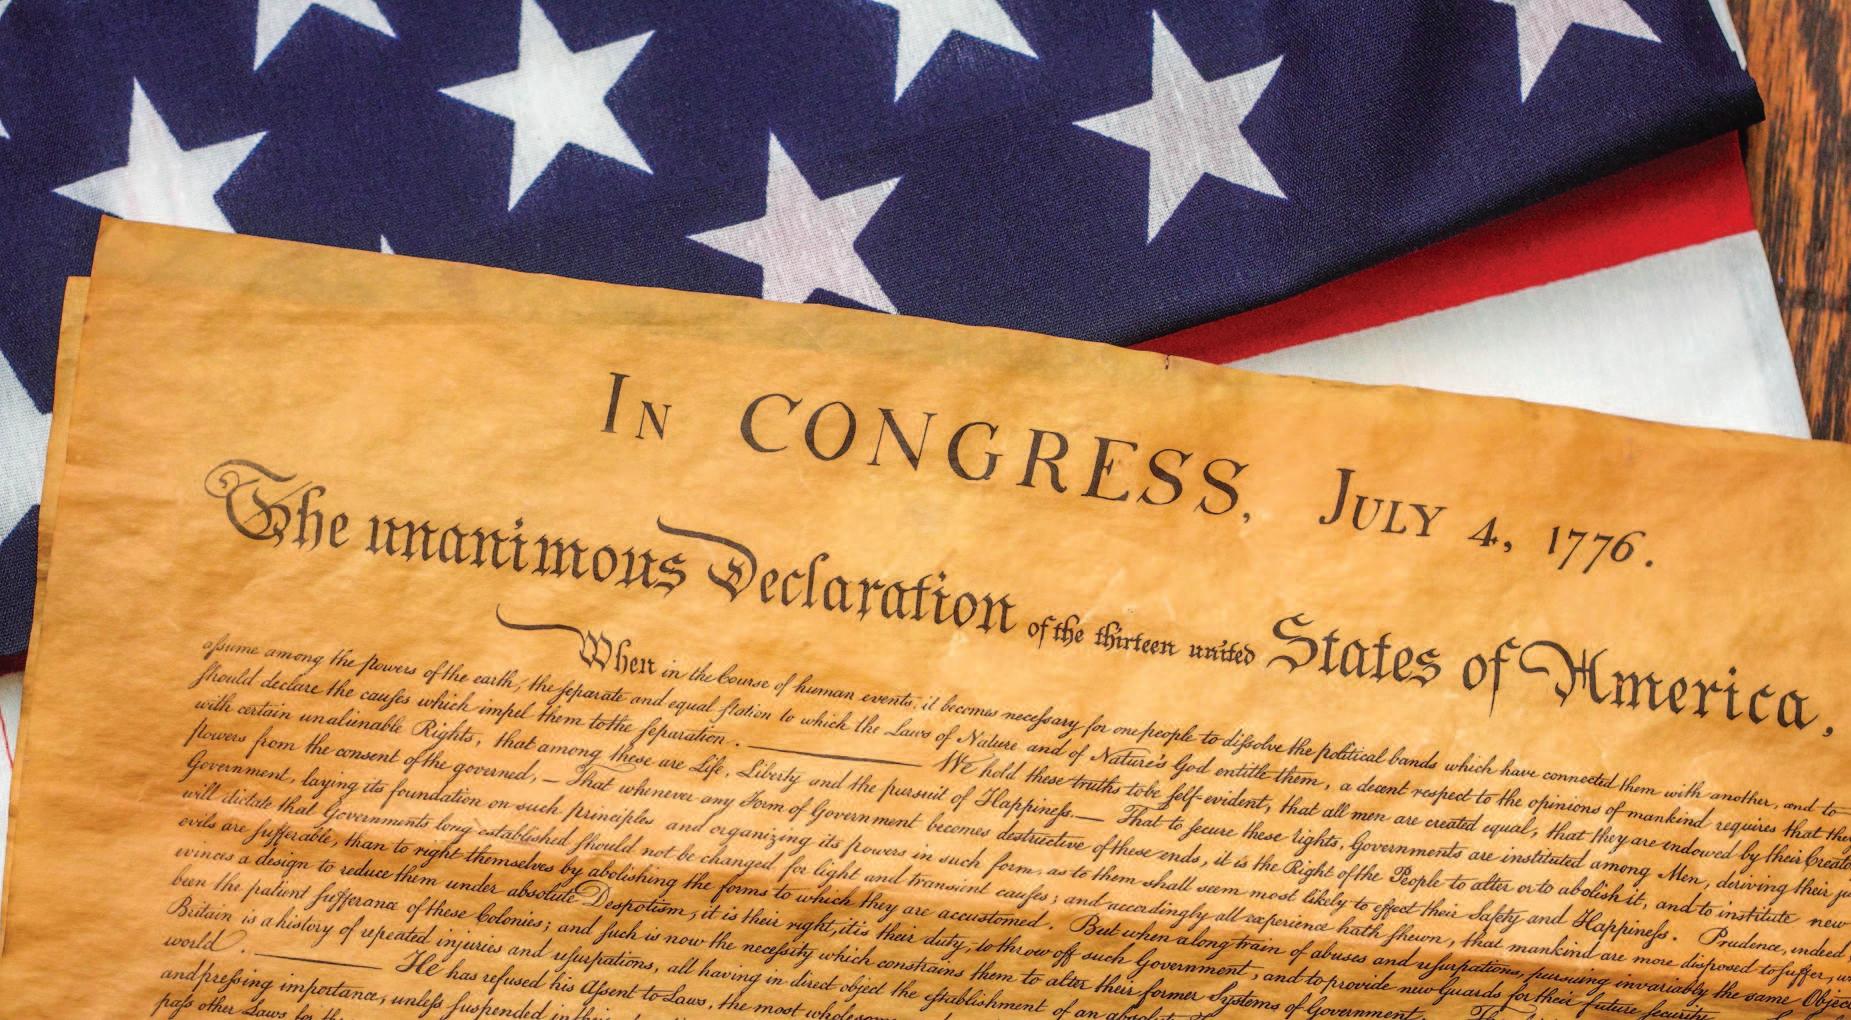 In CONGRESS, July 4, 1776.
The unanimous Declaration of the thirteen united States of America,
When in the Course of human events, it becomes necessary for one people to dissolve the political bands which have connected them with another, and to
assume among the powers of the earth, the separate and equal station to which the Laws of Nature and of Nature's God entitle them, a decent respect to the opinions of mankind requires that they
should declare the causes which impel them to the separation. —— We hold these truths to be self-evident, that all men are created equal, that they are endowed by their Creato
with certain unalienable Rights, that among these are Life, Liberty and the pursuit of Happiness.— That to secure these rights, Governments are instituted among Men, deriving their ju
powers from the consent of the governed, — That whenever any Form of Government becomes destructive of these ends, it is the Right of the People to alter or to abolish it, and to institute new
Government, laying its foundation on such principles and organizing its powers in such form, as to them shall seem most likely to effect their Safety and Happiness. Prudence, indeed,
will dictate that Governments long established should not be changed for light and transient causes; and accordingly all experience hath shewn, that mankind are more disposed to suffer, w
evils are sufferable, than to right themselves by abolishing the forms to which they are accustomed. But when a long train of abuses and usurpations, pursuing invariably the same Object
evinces a design to reduce them under absolute Despotism, it is their right, it is their duty, to throw off such Government, and to provide new Guards for their future security.
been the patient sufferance of these Colonies; and such is now the necessity which constrains them to alter their former Systems of Government.
Britain is a history of repeated injuries and usurpations, all having in direct object the establishment of an absolute
world. —— He has refused his Assent to Laws, the most wholesome
and pressing importance, unless suspended in
pass other Laws for